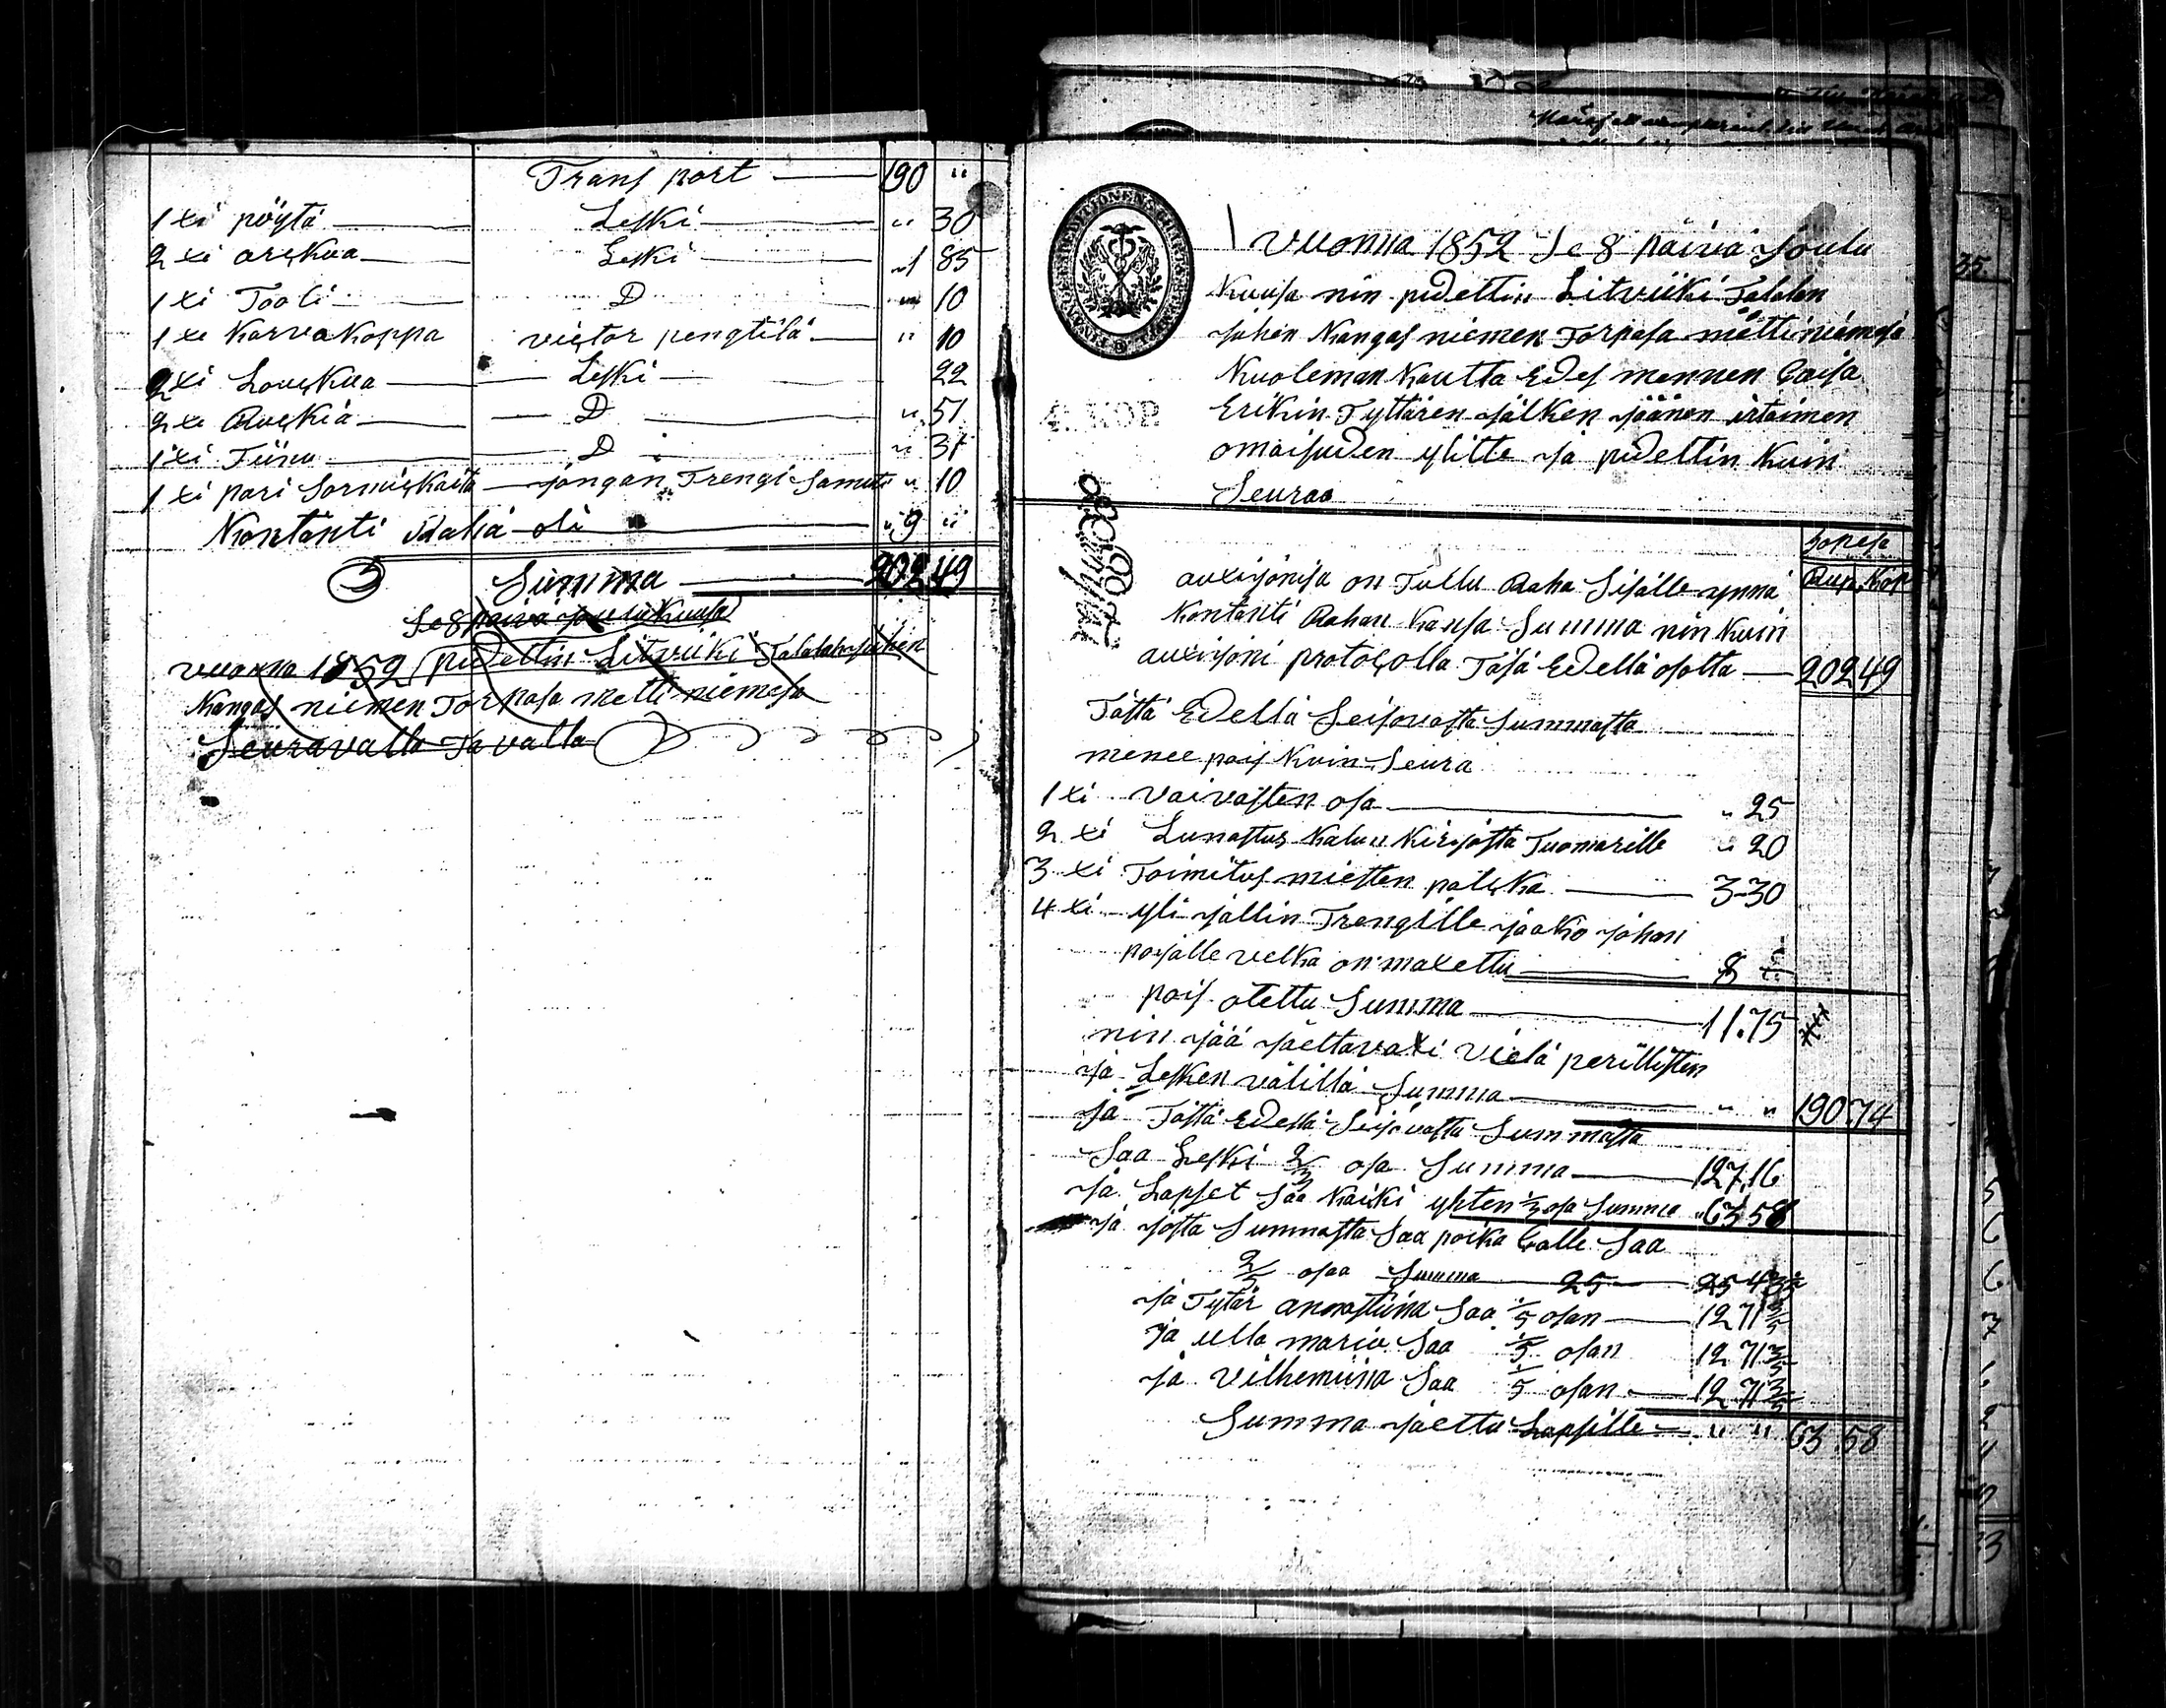 Transport — 190 "
1 xi pöytä — Leski — " 30
2 xi arckua — Leski — 1 85
1 xi Tooli — D — " 10
1 xi Korvakoppa victor pengtilä — " 10
2 xi Louckua — Leski — 22
2 xi Ruckia — D — " 51
1 xi Tiinu — D — " 31
1 xi pari Sormickaita — jongan Trengi Samuti " 10
Kontanti Raha oli — " 9 "
Summa — 202 49
Se 8 päivä joulukuusa
vuonna 1852 pidettin Litviiki Talalan johen
Kangas niemen Torpasa metti niemesa
Seuravalla Tavalla
Vuonna 1852 Se 8 päivä Joulu
Kuusa nin pidettin Litviiki Talalan
johen Kangas niemen Torpasa mettiniemesä
Kuoleman Kautta Edes mennen Caisa
Erikin Tyttären jälken jäänen irtaimen
omaisuden ylitte ja pidettin Kuin
Seuraa
4. KOP.
hopesa
Rup. Kop
auxijonisa on Tullu Raha Sisälle ynnä
Kontanti Rahan Kansa Summa nin Kuin
auxijoni protocolla Täsä Edellä osotta — 202 49
Tästä Edellä Seisovasta Summasta
menee pois Kuin Seura
1 xi vaivasten osa — " 25
2 xi Lunastus Kalun Kirjasta Tuomarille " 20
3 xi Toimitus miesten palcka — 3-30
4 xi yli jällin Trengille jaako johan
pojalle velka on maxettu — 8 "
pois otettu Summa — 11.75
nin jää jaettavaxi vielä perillisten
ja Lesken välillä Summa — " " 190.74
ja Tästä Edellä Seisovasta Summasta
Saa Leski 2/3 osa Summa — 127,16
ja Lapset Saa Kaiki yhten 1/3 osa Summa " 63 58
ja josta Summasta Saa poika Calle Saa
2/5 osaa Summa — 25 — 25 43
ja Tytär annastiina Saa 1/5 osan — 12 71 3/5
ja ulla maria Saa 1/5 osan 12 71 3/5
ja Vilhemiina Saa 1/5 osan — 12 71 3/5
Summa jaettu Lapsille — " " 63 58